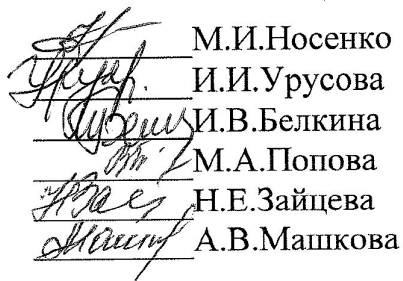 М.И.Носенко
И.И.Урусова
И.В.Белкина
М.А.Попова
Н.Е.Зайцева
А.В.Машкова